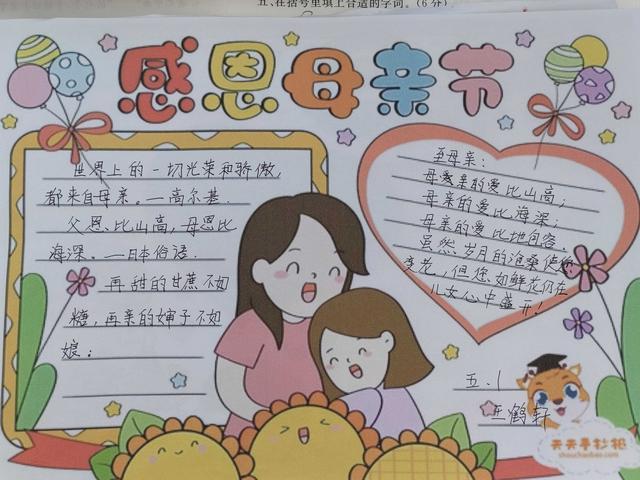 五、在括号里填上合适的字词。(6分)
感恩母亲节
世界上的一切光荣和骄傲,
都来自母亲。一高尔基.
父恩、比山高,母恩比
海深。一日本俗语.
再甜的甘蔗不如
糖,再亲的婶子不如
娘;
至母亲:
母爱亲的爱比山高;
母亲的爱比海深;
母亲的爱比地包容.
虽然岁月的沧桑使您
变老,但您如鲜花仍在
儿女心中盛开!
五.1
王鹤轩
天天手抄报
shouchaobao.com